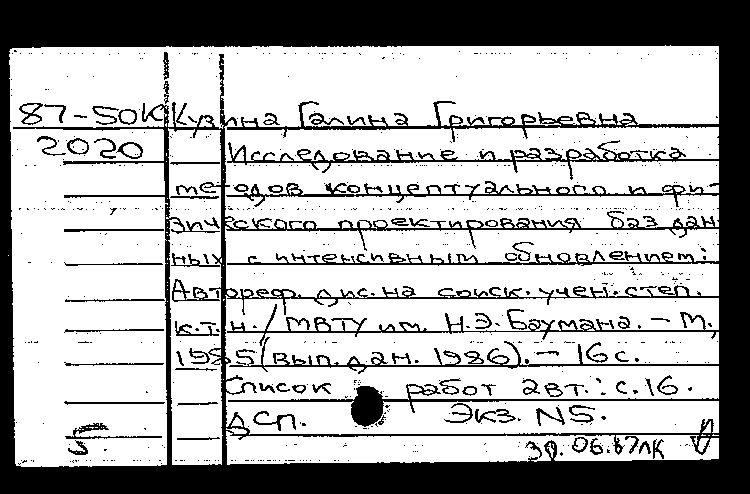 87-50К Кузина, Галина Григорьевна
2020 Исследование и разработка
методов концептуального и фи-
зического проектирования баз дан-
ных с интенсивным обновлением:
Автореф. дис. на соиск. учен. степ.
к.т.н. / МВТУ им. Н.Э. Баумана. – М.,
1985 (вып. дан. 1986). – 16 с.
Список работ авт.: с. 16.
ДСП. Экз. N5.
5 30.06.87